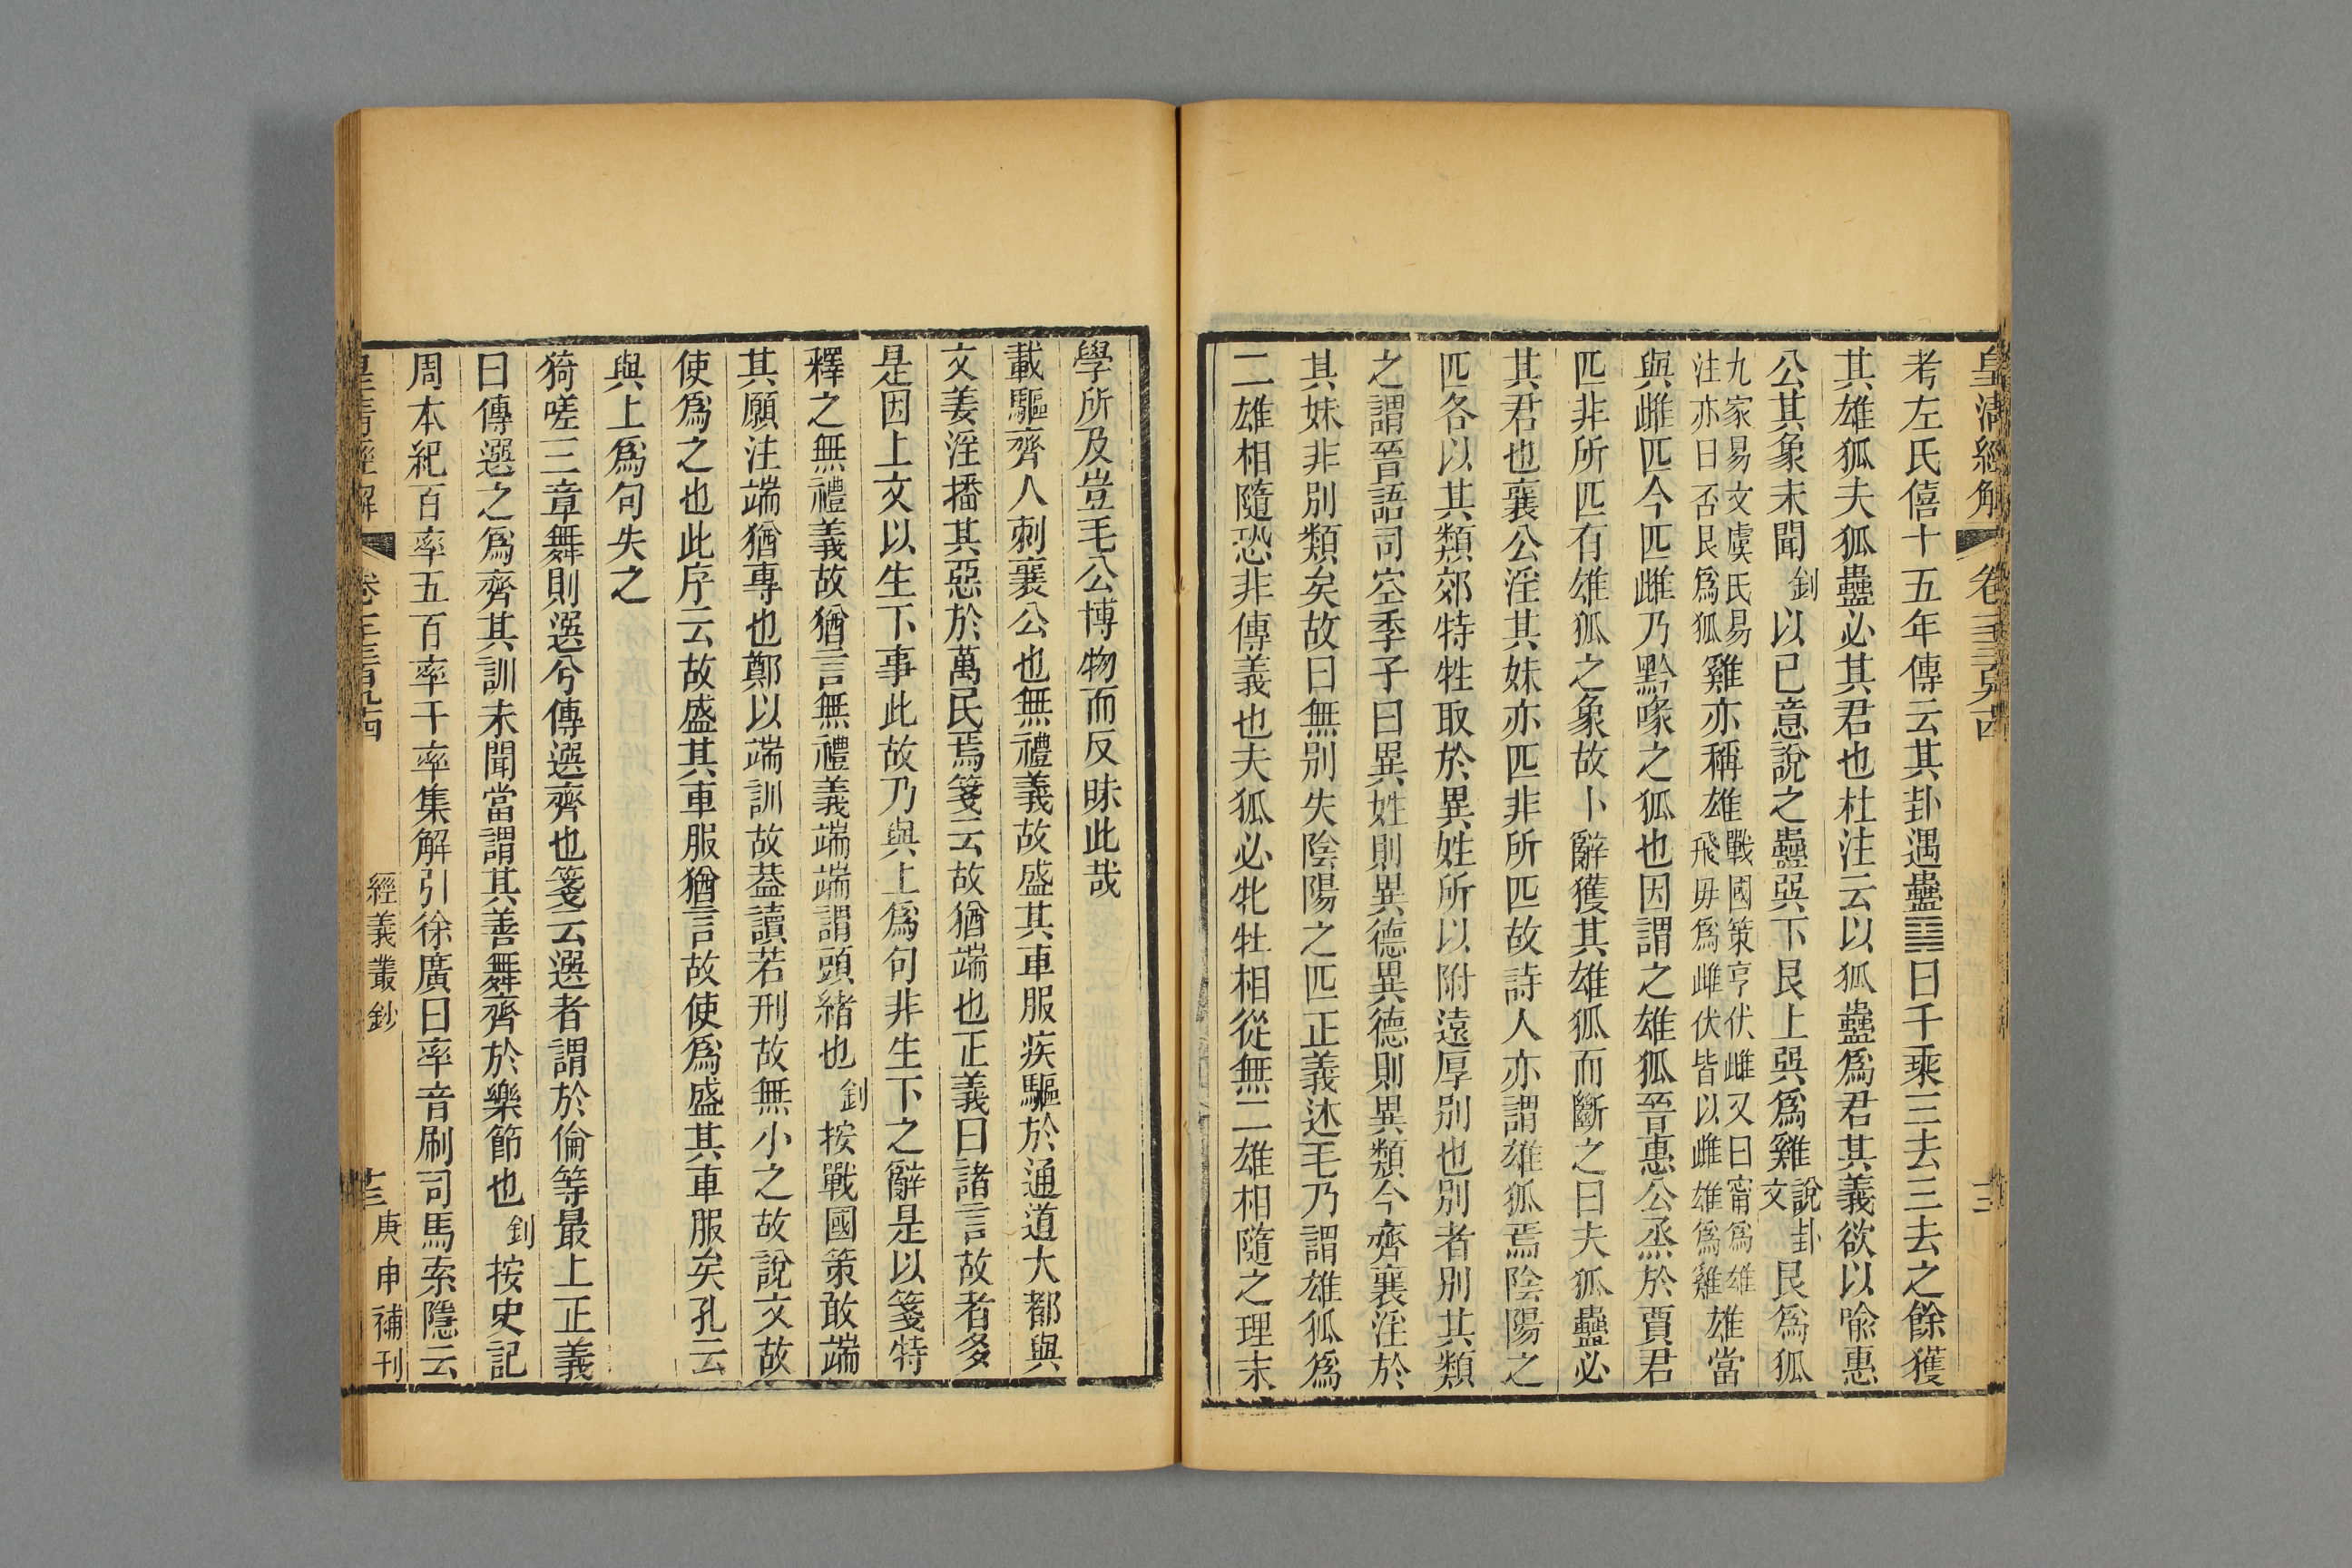 皇清經解
考左氏僖十五年傳云其卦遇蠱䷑曰千乘三去三去之餘獲
其雄狐夫狐蠱必其君也杜注云以狐蠱爲君其義欲以喻惠
公其象未聞釗以已意說之蠱巽下艮上巽爲雞說卦文艮爲狐
九家易文虞氏易注亦曰否艮爲狐雞亦稱雄戰國策亨伏雌又曰甯爲雄飛毋爲雌伏皆以雌雄爲雞雄當
與雌匹今匹雌乃黔喙之狐也因謂之雄狐晉惠公烝於賈君
匹非所匹有雄狐之象故卜辭獲其雄狐而斷之曰夫狐蠱必
其君也襄公淫其妹亦匹非所匹故詩人亦謂雄狐焉陰陽之
匹各以其類郊特牲取於異姓所以附遠厚別也別者別其類
之謂晉語司空季子曰異姓則異德異德則異類今齊襄淫於
其妹非別類矣故曰無別失陰陽之匹正義述毛乃謂雄狐爲
二雄相隨恐非傳義也夫狐必牝牡相從無二雄相隨之理末
學所及豈毛公博物而反昧此哉
載驅齊人刺襄公也無禮義故盛其車服疾驅於通道大都與
文姜淫播其惡於萬民焉箋云故猶端也正義曰諸言故者多
是因上文以生下事此故乃與上爲句非生下之辭是以箋特
釋之無禮義故猶言無禮義端端謂頭緒也釗按戰國策敢端
其願注端猶專也鄭以端訓故葢讀若刑故無小之故說文故
使爲之也此序云故盛其車服猶言故使爲盛其車服矣孔云
與上爲句失之
猗嗟三章舞則選兮傳選齊也箋云選者謂於倫等最上正義
曰傳選之爲齊其訓未聞當謂其善舞齊於樂節也釗按史記
周本紀百率五百率千率集解引徐廣曰率音刷司馬索隱云
皇清經解
經義叢鈔
庚申補刊